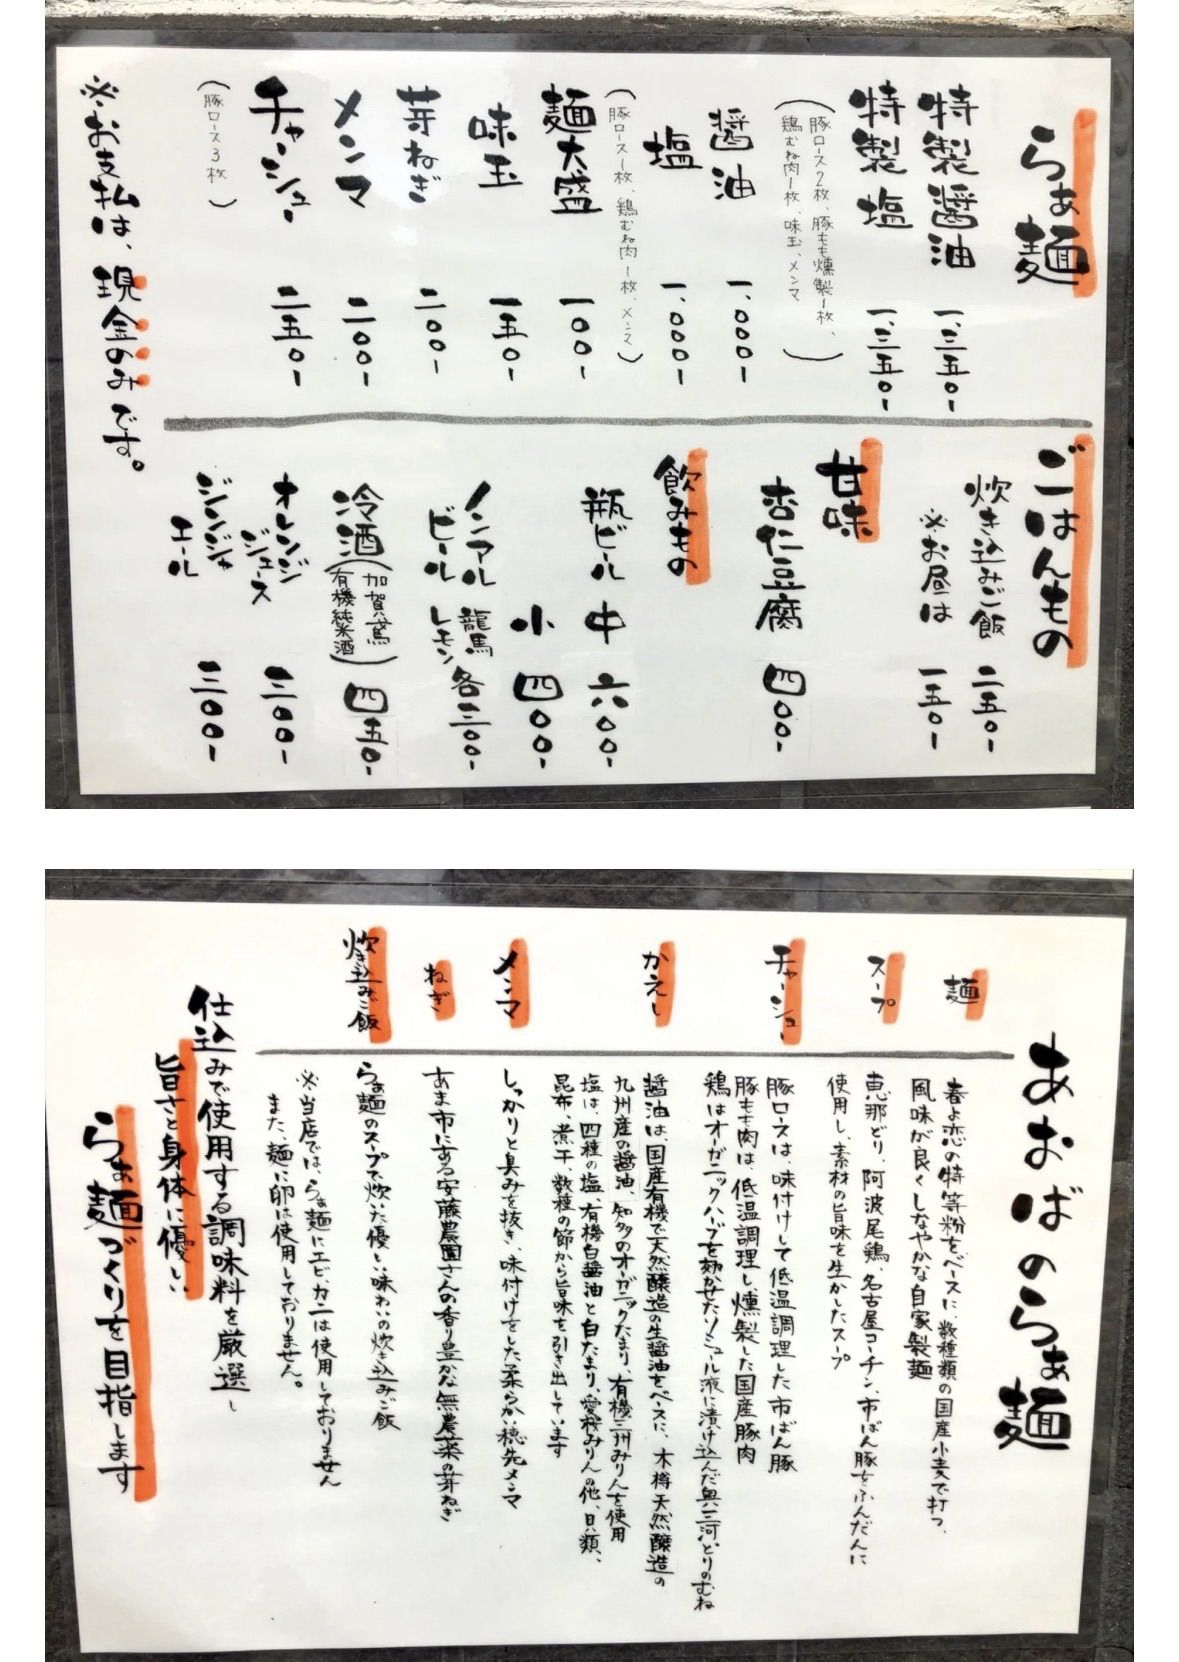 らぁ麺
特製醤油 一、三五〇-
特製塩 一、三五〇-
(豚ロース2枚、豚もも燻製1枚、
鶏むね肉1枚、味玉、メンマ)
醤油 一、〇〇〇-
塩 一、〇〇〇-
(豚ロース1枚、鶏むね肉1枚、メンマ)
麺大盛 一〇〇-
味玉 一五〇-
芽ねぎ 二〇〇-
メンマ 二〇〇-
チャーシュー 二五〇-
(豚ロース3枚)
※お支払は、現金のみです。
ごはんもの
炊き込みご飯 二五〇-
※お昼は 一五〇-
甘味
杏仁豆腐 四〇〇-
飲みもの
瓶ビール 中 六〇〇-
小 四〇〇-
ノンアルビール 龍馬レモン 各三〇〇-
冷酒(加賀鳶有機純米酒) 四五〇-
オレンジジュース 三〇〇-
ジンジャエール 三〇〇-
あおばのらぁ麺
麺
春よ恋の特等粉をベースに、数種類の国産小麦で打つ、
風味が良くしなやかな自家製麺
スープ
恵那どり、阿波尾鶏、名古屋コーチン、市ばん豚をふんだんに
使用し、素材の旨味を生かしたスープ
チャーシュー
豚ロースは、味付けして低温調理した市ばん豚
豚もも肉は、低温調理し、燻製した国産豚肉
鶏はオーガニックハーブを効かせたソミュール液に漬け込んだ奥三河どりのむね
かえし
醤油は、国産有機で天然醸造の生醤油をベースに、木樽天然醸造の
九州産の醤油、知多のオーガニックたまり、有機三州みりんを使用
塩は、四種の塩、有機白醤油と白たまり、愛桜みりんの他、貝類、
昆布、煮干、数種の節から旨味を引き出しています
メンマ
しっかりと臭みを抜き、味付けをした柔らかい穂先メンマ
ねぎ
あま市にある安藤農園さんの香り豊かな無農薬の芽ねぎ
炊き込みご飯
らぁ麺のスープで炊いた優しい味わいの炊き込みご飯
※当店では、らぁ麺にエビ、カニは使用しておりません
また、麺に卵は使用しておりません。
仕込みで使用する調味料を厳選し
旨さと身体に優しい
らぁ麺づくりを目指します